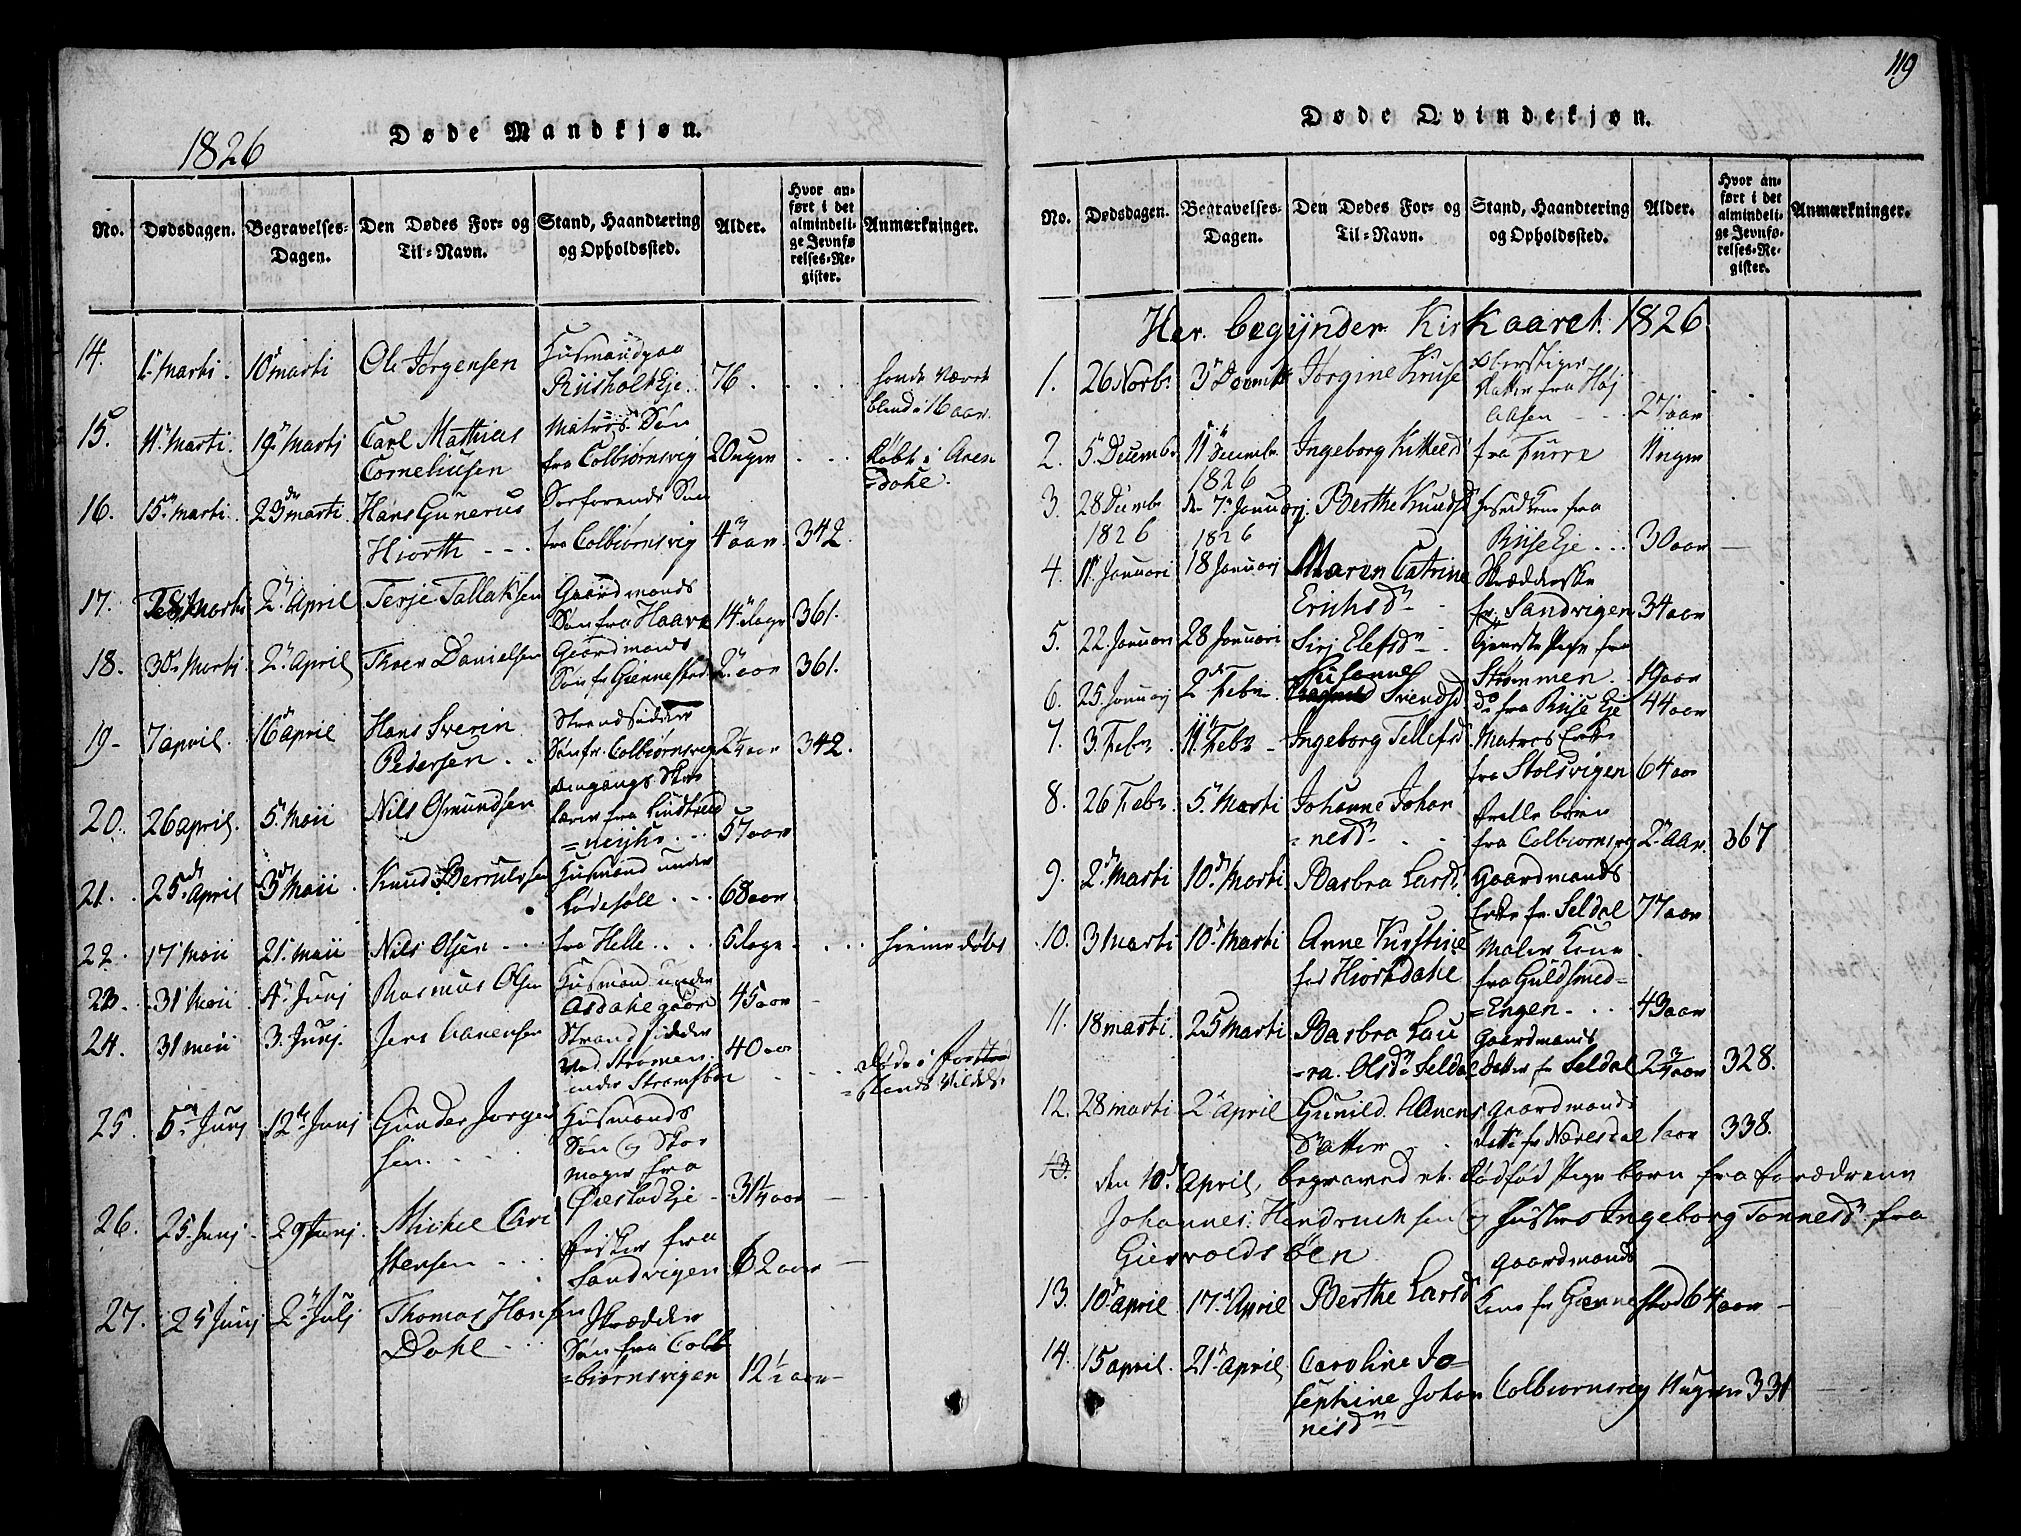 119
1826
Døde Mandkjøn.
No. Dødsdagen. Begravelses-Dagen. Den Dødes For- og Til-Navn. Stand, Haandtering og Opholdssted. Alder. Hvor anført i det almindelige Jevnførelses-Register. Anmærkninger.
14. 1 Marti. 10 marti Ole Jørgensen Husmand paa
Riisholt Eje. 76. havde været
blind i 16 aar.
15. 11 Marti. 19 Marti Carl Mathias Matros Søn
Corneliusen fra Colbiørnsvig 20 uger døbt i Aren
=dahl.
16. 15 marti. 23 marti. Hans Gunerus Søefarende Søn
Hiorth fra Colbiørnsvig 4 aar. 342.
17. 28 Marti 2 April Terje Tallaksen Gaardmands
Søn fra Haave 14 dage 361.
18. 30 Marti 2 April Thoer Danielsen Gaardmands
Søn fr Giennestad 2 aar 361.
19 7 april. 16 april Hans Sverin Strandsidder
Pedersen Søn fr. Colbiørnsvig aar 342.
20. 26 april. 5 Maii Nils Osmundsen Omgangs Skole
lærer fra
57 aar
21. 25 April 3 Maii Knud Berrulvsen Husmand under
Lødesøll 68 aar
22. 17 Maii 21 maii Nils Olsen fra Helle 6 dage hiemedøbt
23. 31 Maii 4 Junj Rasmus Olsen Husmand under
Asdahl gaard 45 aar
24. 31 maii 3. Junj. Jens Aanensen Strandsidder
ved Strømmen 40 aar
under Strømsboe Døde i
25. 5 Junj 12 Junj Gunder Jørgen Husmands
sen. Søn og Skoe
mager fra
Øiestad Eje 31 aar
26. 25 Junj 29 Junj. Michel Chri
stensen Fisker fra
Sandvigen 62 aar
27. 25 Junj 2 Julj Thomas Hansen Skrædder
Dahl Søn fra Colb
=biørnsvigen 12½ aar
Døde Qvindekjøn.
No. Dødsdagen. Begravelses-Dagen. Den Dødes For- og Til-Navn. Stand, Haandtering og Opholdssted. Alder. Hvor anført i det almindelige Jevnførelses-Register. Anmærkninger.
Her begynder Kirkaaret 1826
1. 26 Novbr 3 Decembr Jørgine Kruse Oberstiger
datter fra Høj
aasen aar
2. 5 Decemb 11 Decembr Ingeborg Kittelsd fra Furre 11 ugr
1826
3. 28 Decembr den 7 Januarj. Berthe Knudsd fra
Riise Eje 30 aar
1826 1826
4. 11 Januari 18 Januarj Maren Catrine Skrædderske
Erichsd fr. Sandvigen 34 aar
5. 22 Januari 28 Januari Sirj Elefsd Tjeneste Pige fra
Strømmen 19 aar
6. 25 Januarj 2 Febr Susanne Svendsd do fra Riise Eje 44 aar
7. 3 Febr 11 Febr Ingeborg Tellefsd Matros Enke
fra Stølsvigen 64 aar
8. 26 Febr 5 Marti Johanne Johan
=nesd fra Colbiornsvig 2 Aar. 367
9. 2 Marti 10 Marti Barbra Larsd Gaardmands
Enke fr. Seldal 77 aar
10. 3 Marti 10 Marti Anne Kirstine Maler Kone
fød Hiorthdahl fra Guldsmed=
=Engen. 43 aar
11. 18 marti 25 Marti Barbra Lau Gaardmands
=ra. Olsd Seldal Datter fr Seldal 2¾ aar 328.
12. 28 marti 2 April Gunild Aanens Gaardmands
Datter datt: fr Nærisdal 1 aar 338.
13. den 10 April, begraved et dødfød Pige barn fra forældrene
Johannes Hendrichsen og Hustro Ingeborg Tønnesd fra
Giervoldsøen
13. 10 april 17 April Berthe Larsd Gaardmands
Kone fr Giennestad 64 aar
14. 15 april. 21 April. Caroline Jo=
sephine Johan Colbiornsvig 11 uger 331
nesd